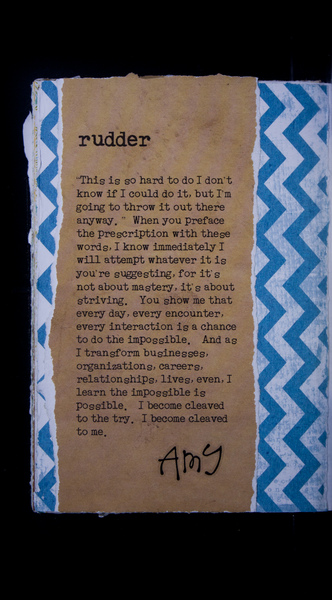 rudder
"This is so hard to do I don't
know if I could do it, but I'm
going to throw it out there
anyway." When you preface
the prescription with these
words, I know immediately I
will attempt whatever it is
you're suggesting, for it's
not about mastery, it's about
striving. You show me that
every day, every encounter,
every interaction is a chance
to do the impossible. And as
I transform businesses,
organizations, careers,
relationships, lives, even, I
learn the impossible is
possible. I become cleaved
to the try. I become cleaved
to me.
Amy